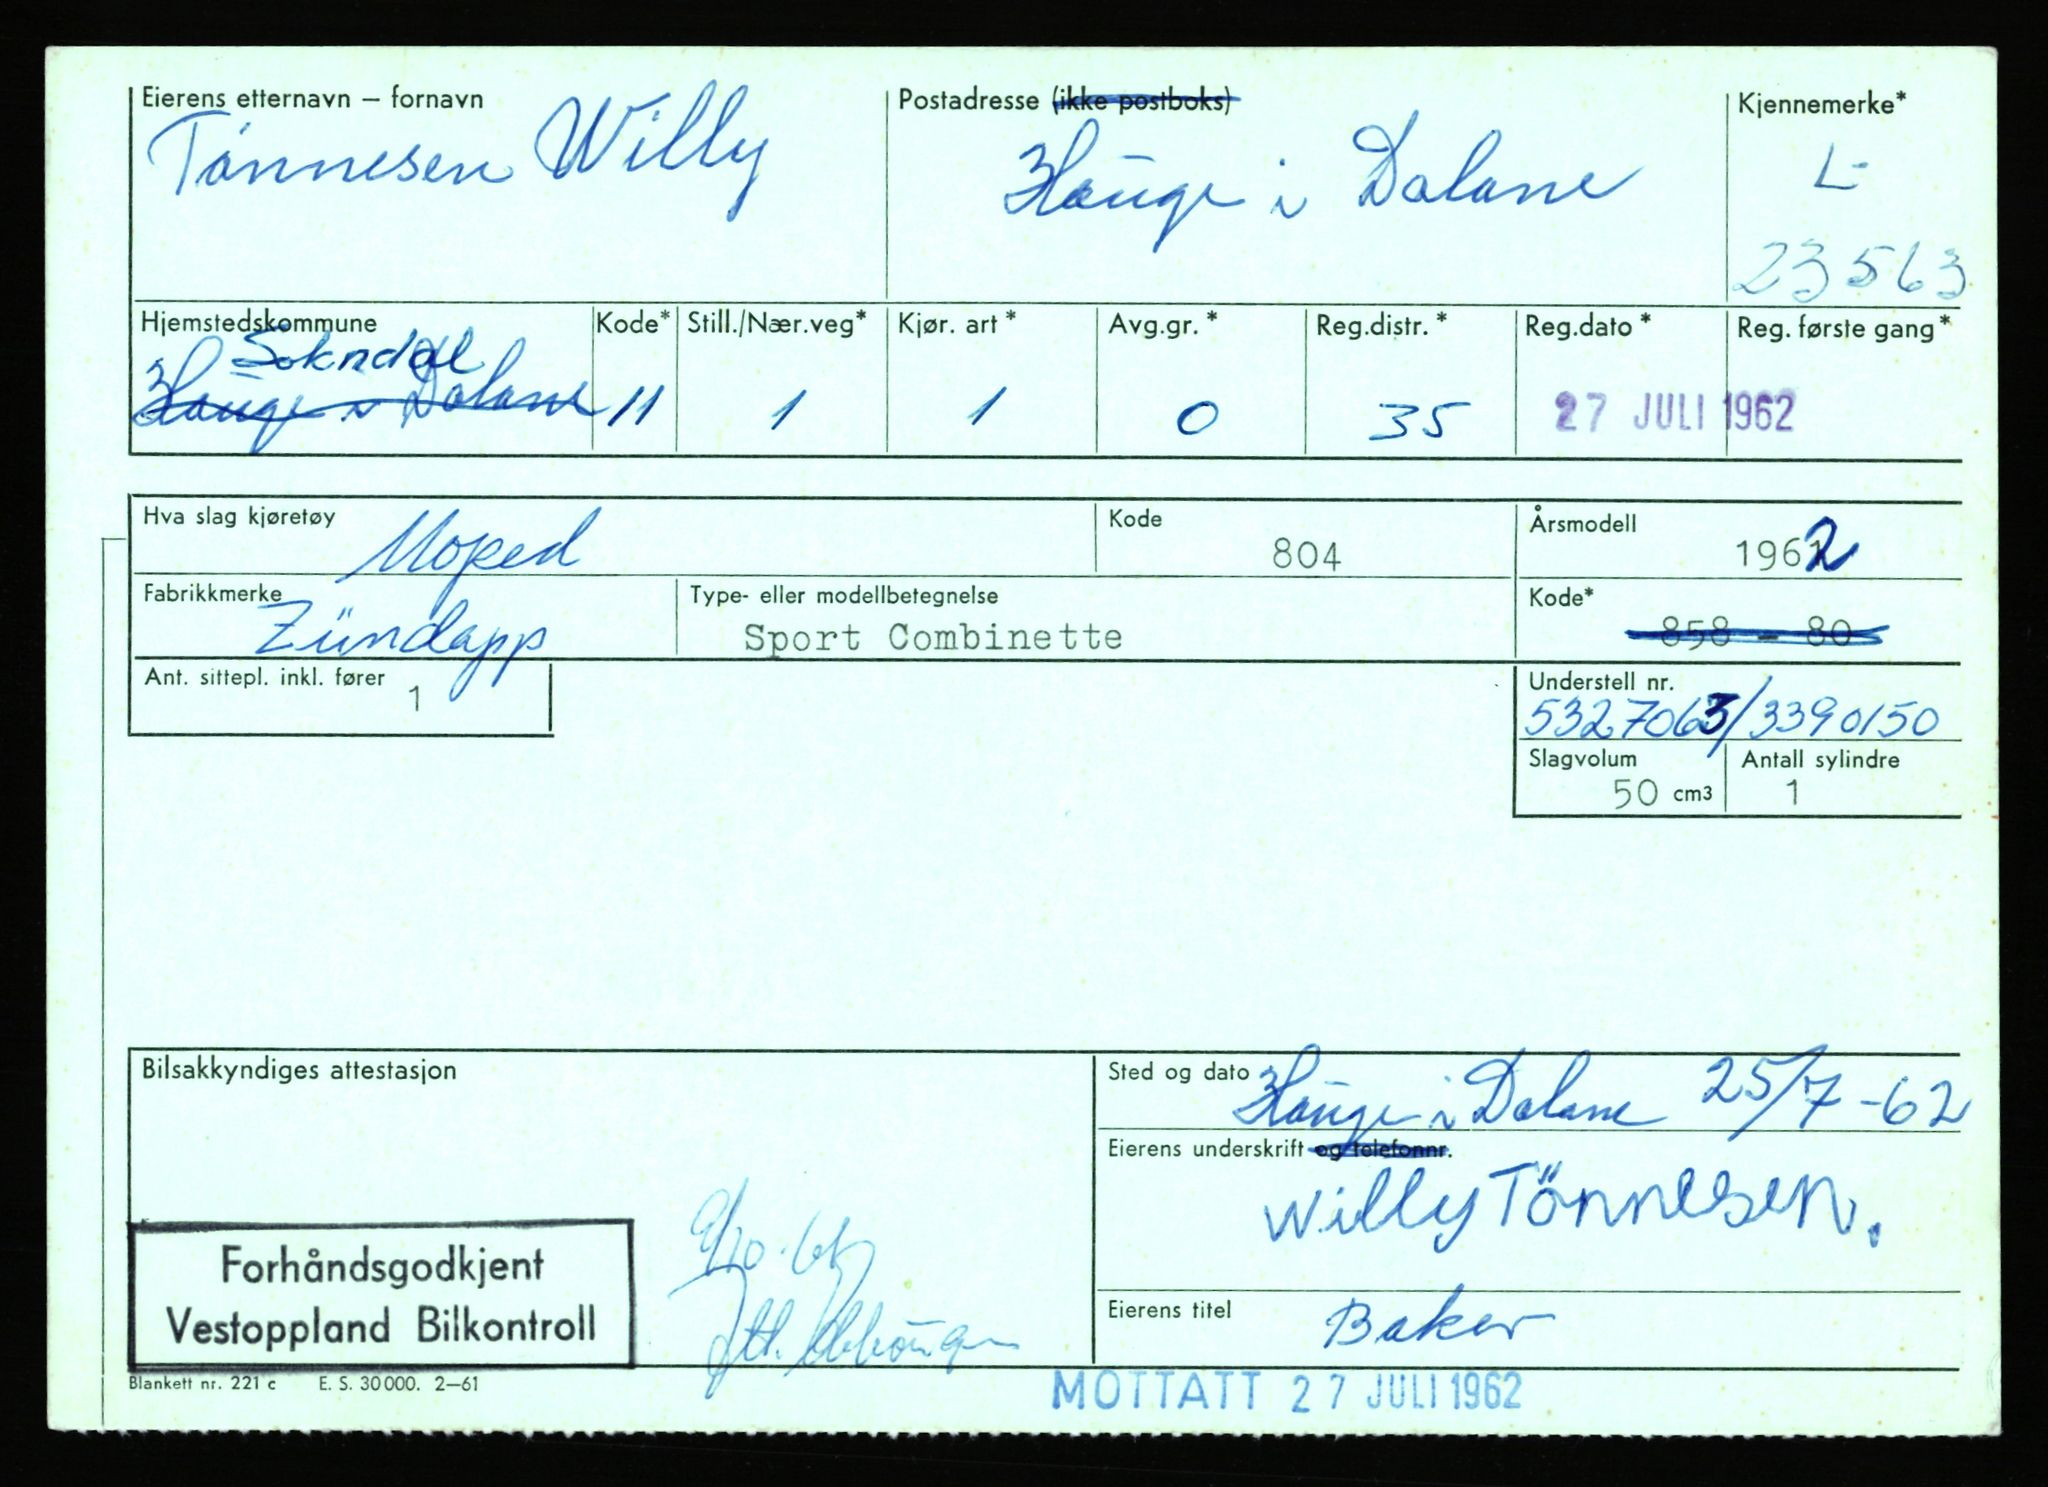 Eierens etternavn – fornavn Postadresse (ikke postboks) Kjennemerke*
Tönnesen Willy Hauge i Dalane L-
23563
Hjemstedskommune Kode* Still./Nær.veg* Kjør. art* Avg.gr.* Reg.distr.* Reg.dato* Reg. første gang*
Sokndal
Hauge i Dalane 11 1 1 0 35 27 JULI 1962
Hva slag kjøretøy Moped Kode 804 Årsmodell 1962
Fabrikkmerke Zündapp Type- eller modellbetegnelse Sport Combinette Kode* 858 - 80
Ant. sittepl. inkl. fører 1 Understell nr.
5327063/3390150
Slagvolum Antall sylindre
50 cm3 1
Bilsakkyndiges attestasjon Sted og dato Hauge i Dalane 25/7-62
Eierens underskrift og telefonnr.
Willy Tönnesen.
Forhåndsgodkjent
Vestoppland Bilkontroll
9/10-61
Eierens titel Baker
Blankett nr. 221 c E. S. 30000. 2–61
MOTTATT 27 JULI 1962